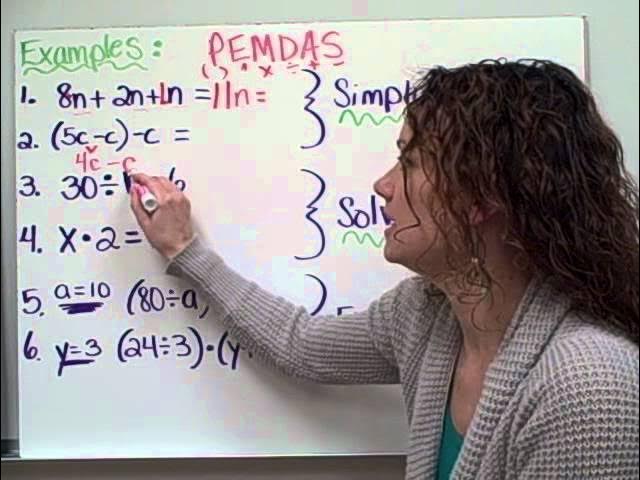 Examples: PEMDAS
( ) ^ × ÷ + –
1. 8n + 2n + 1n = 11n =
2. (5c - c) - c =
4c - c
3. 30 ÷ 6
4. x • 2 =
5. a=10 (80 ÷ a,
6. y=3 (24÷3)•(y